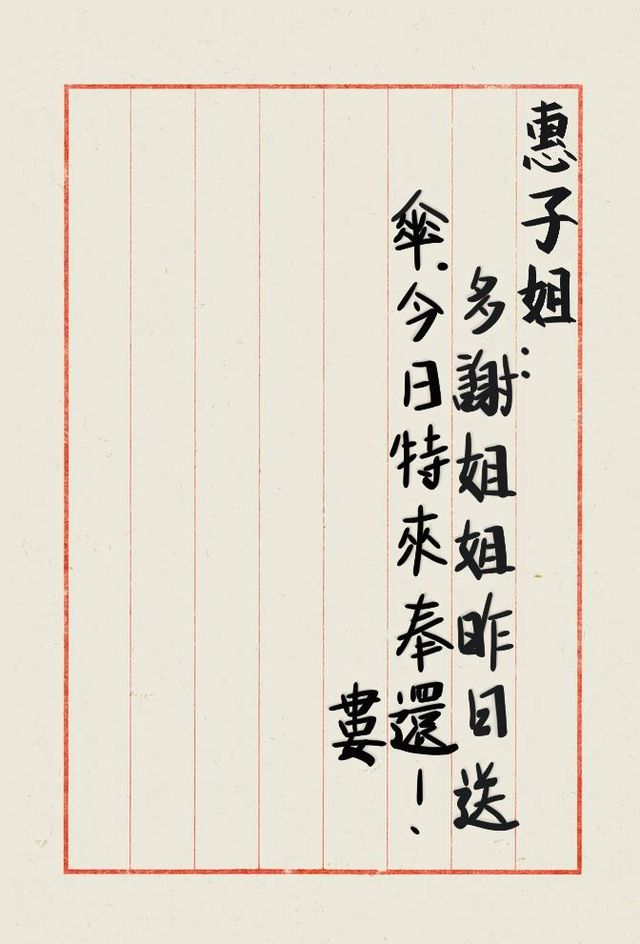 惠子姐：
多謝姐姐昨日送
傘.今日特來奉還！
婁